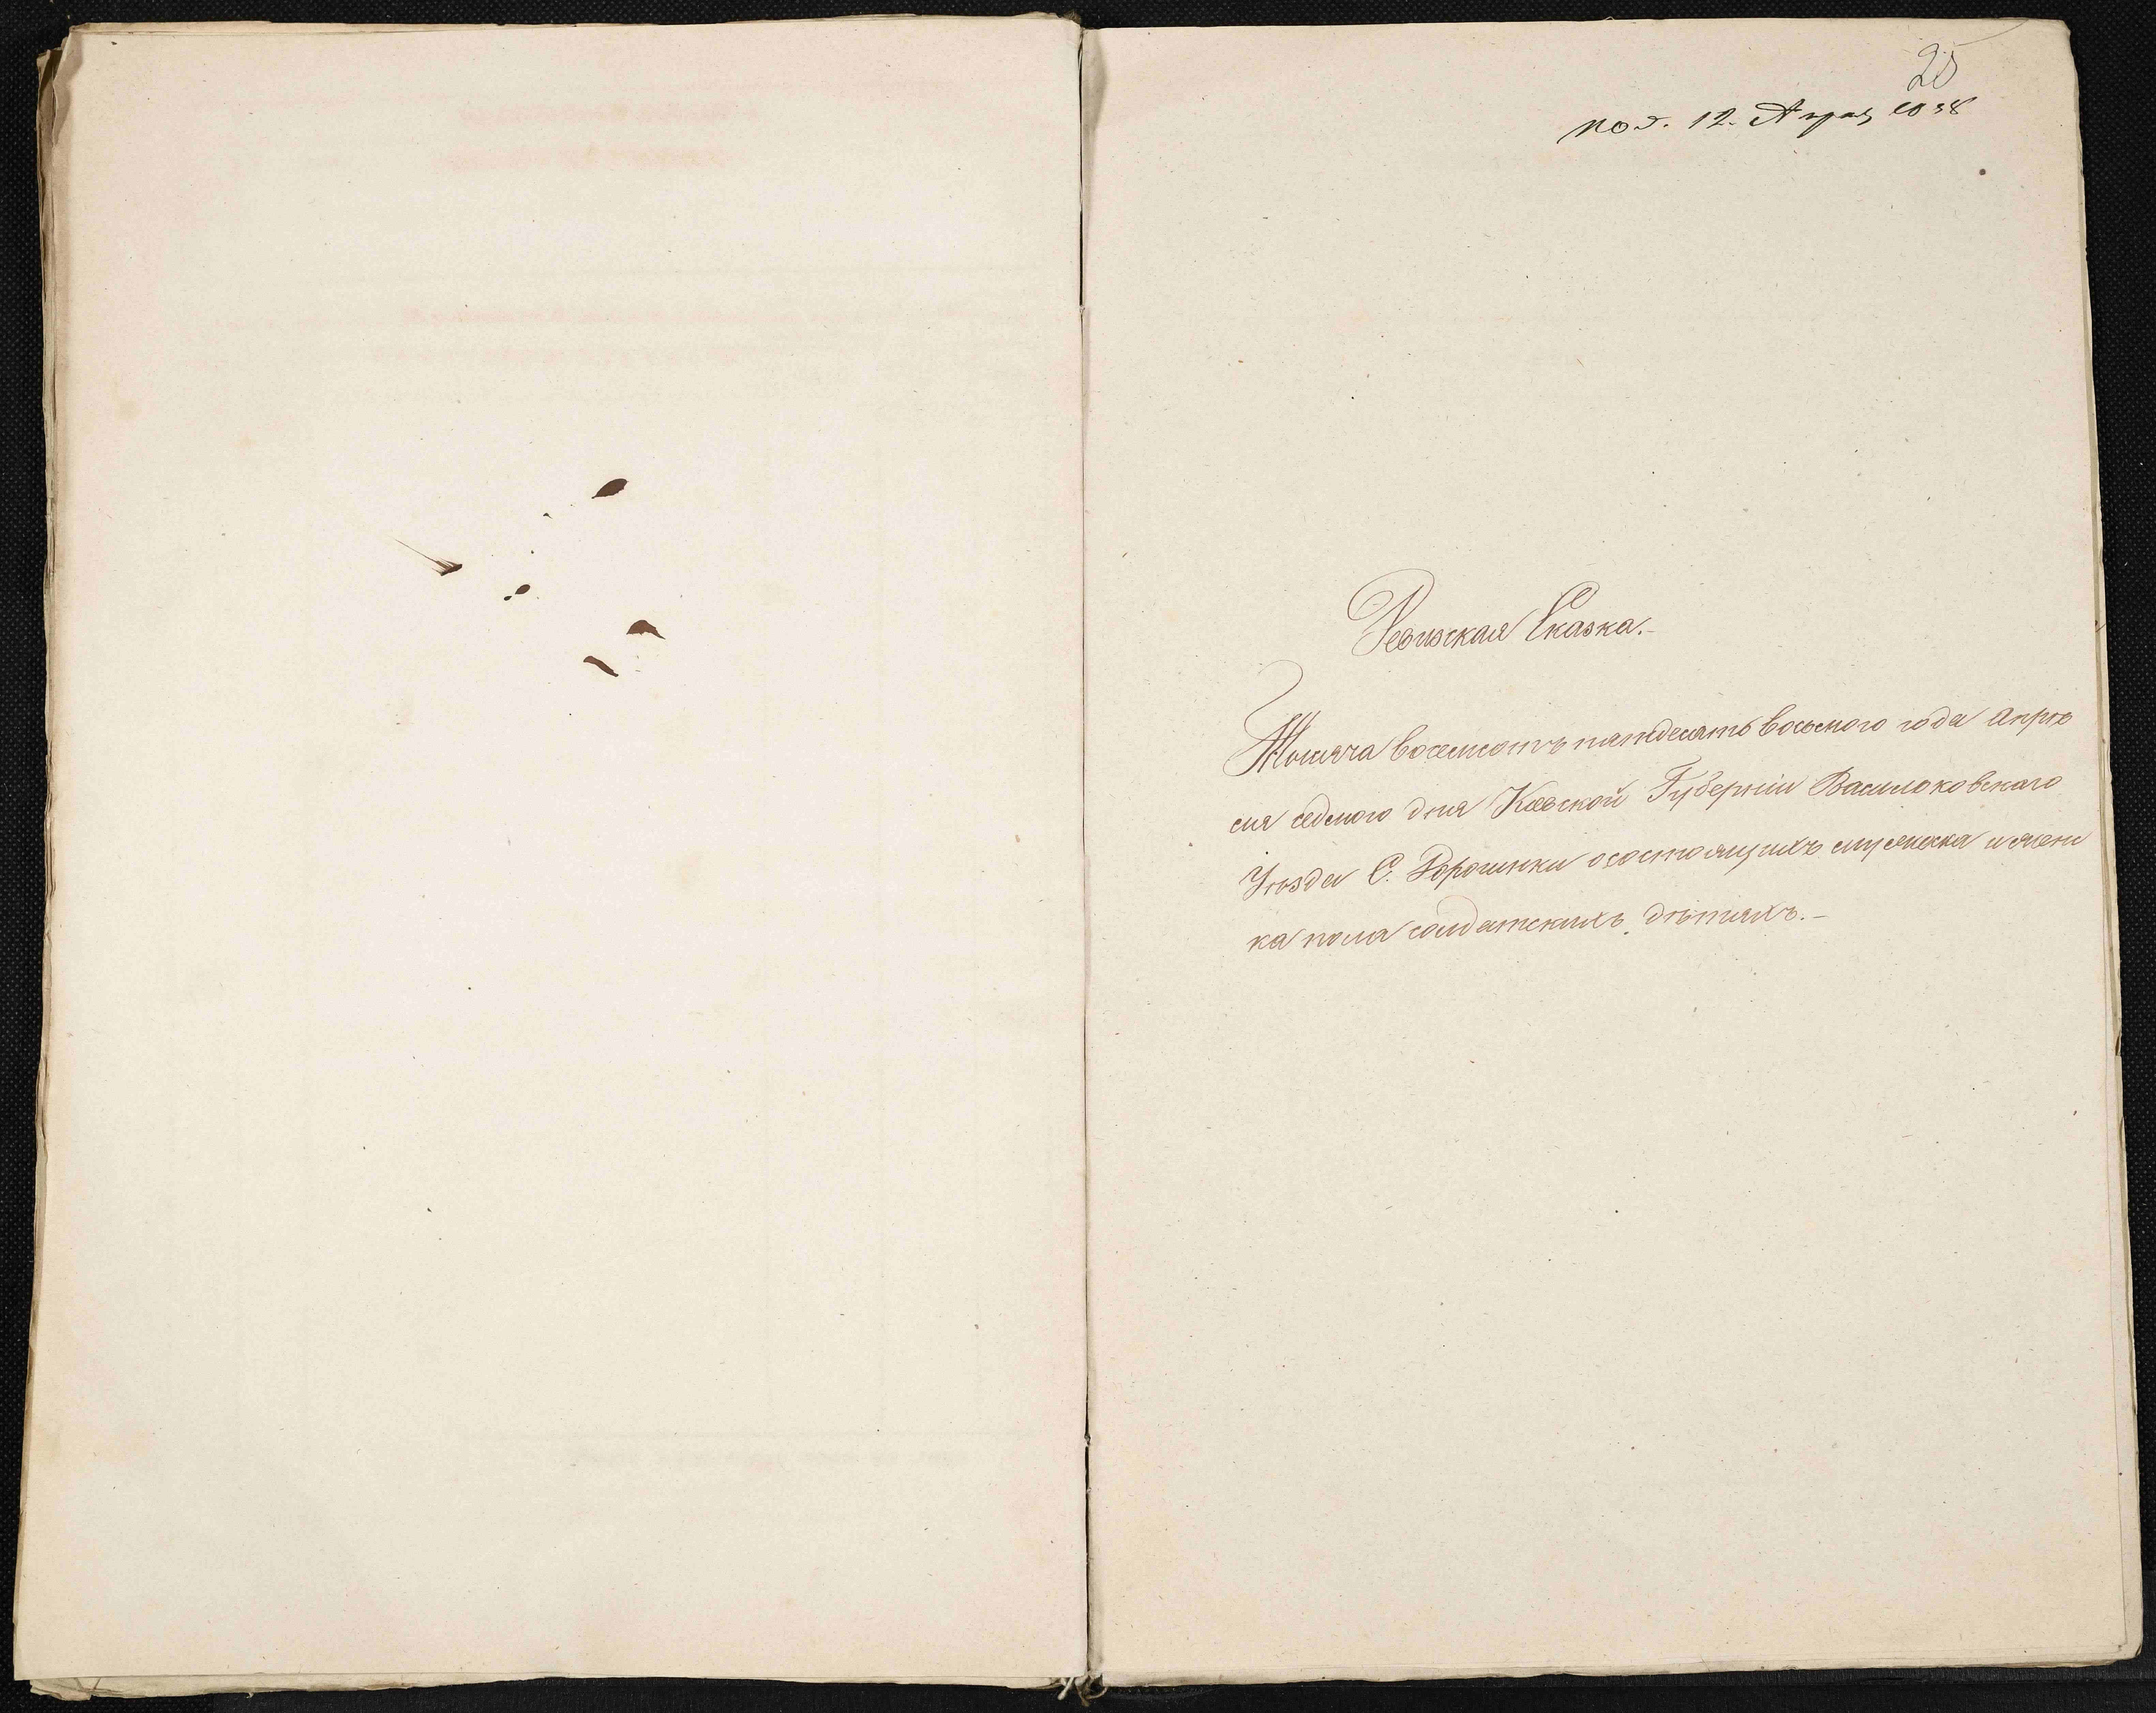 25
пол. 12. Апрѣ 1858
Ревизская Сказка.-
Тысяча восемсотъ пятдесятъ восьмого года Апрѣ
ля седмого дня Кіевской Губерніи Васильковскаго
Уѣзда С. Дорогинки о состоящихъ мужеска и женс
ка пола солдатскихъ дѣтяхъ.-